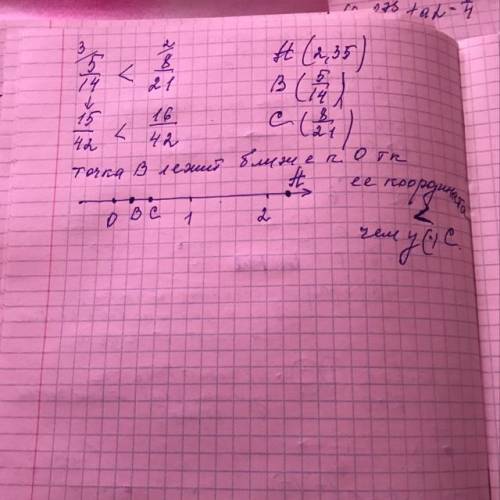 3 2
5/14 < 8/21
15/42 < 16/42
A (2,35)
B (5/14)
C (8/21)
точка В лежит ближе к О тк
ее координата
<
чем у (·) С.
A
0 B C 1 2